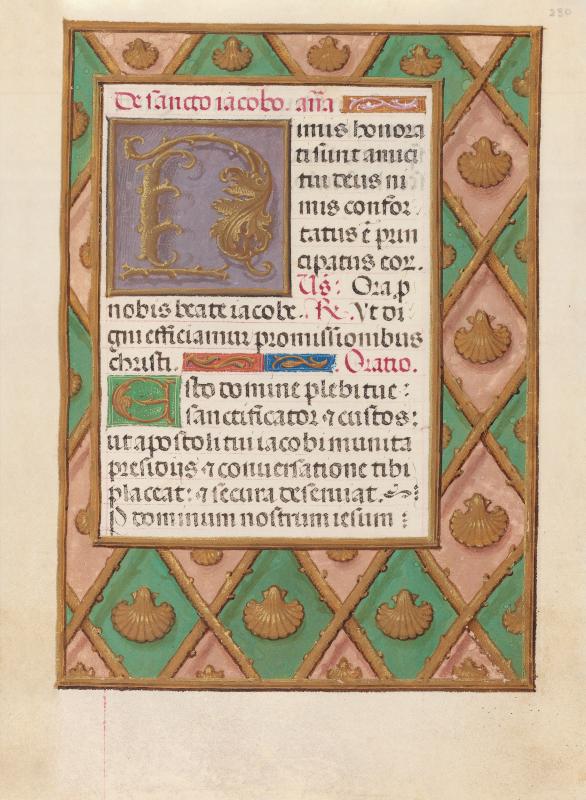 230
De sancto iacobo. añā
Nimis honora
ti sunt amici
tui deus ni
mis confor
tatus ē prin
cipatus eor.
Vs: Ora p
nobis beate iacobe. R. Vt di
gni efficiamur promissionibus
christi. Oratio.
Esto domine plebi tue:
sanctificator ⁊ custos:
ut apostoli tui iacobi munita
presidiis ⁊ conuersatione tibi
placeat: ⁊ secura deseruiat.
P dominum nostrum iesum: